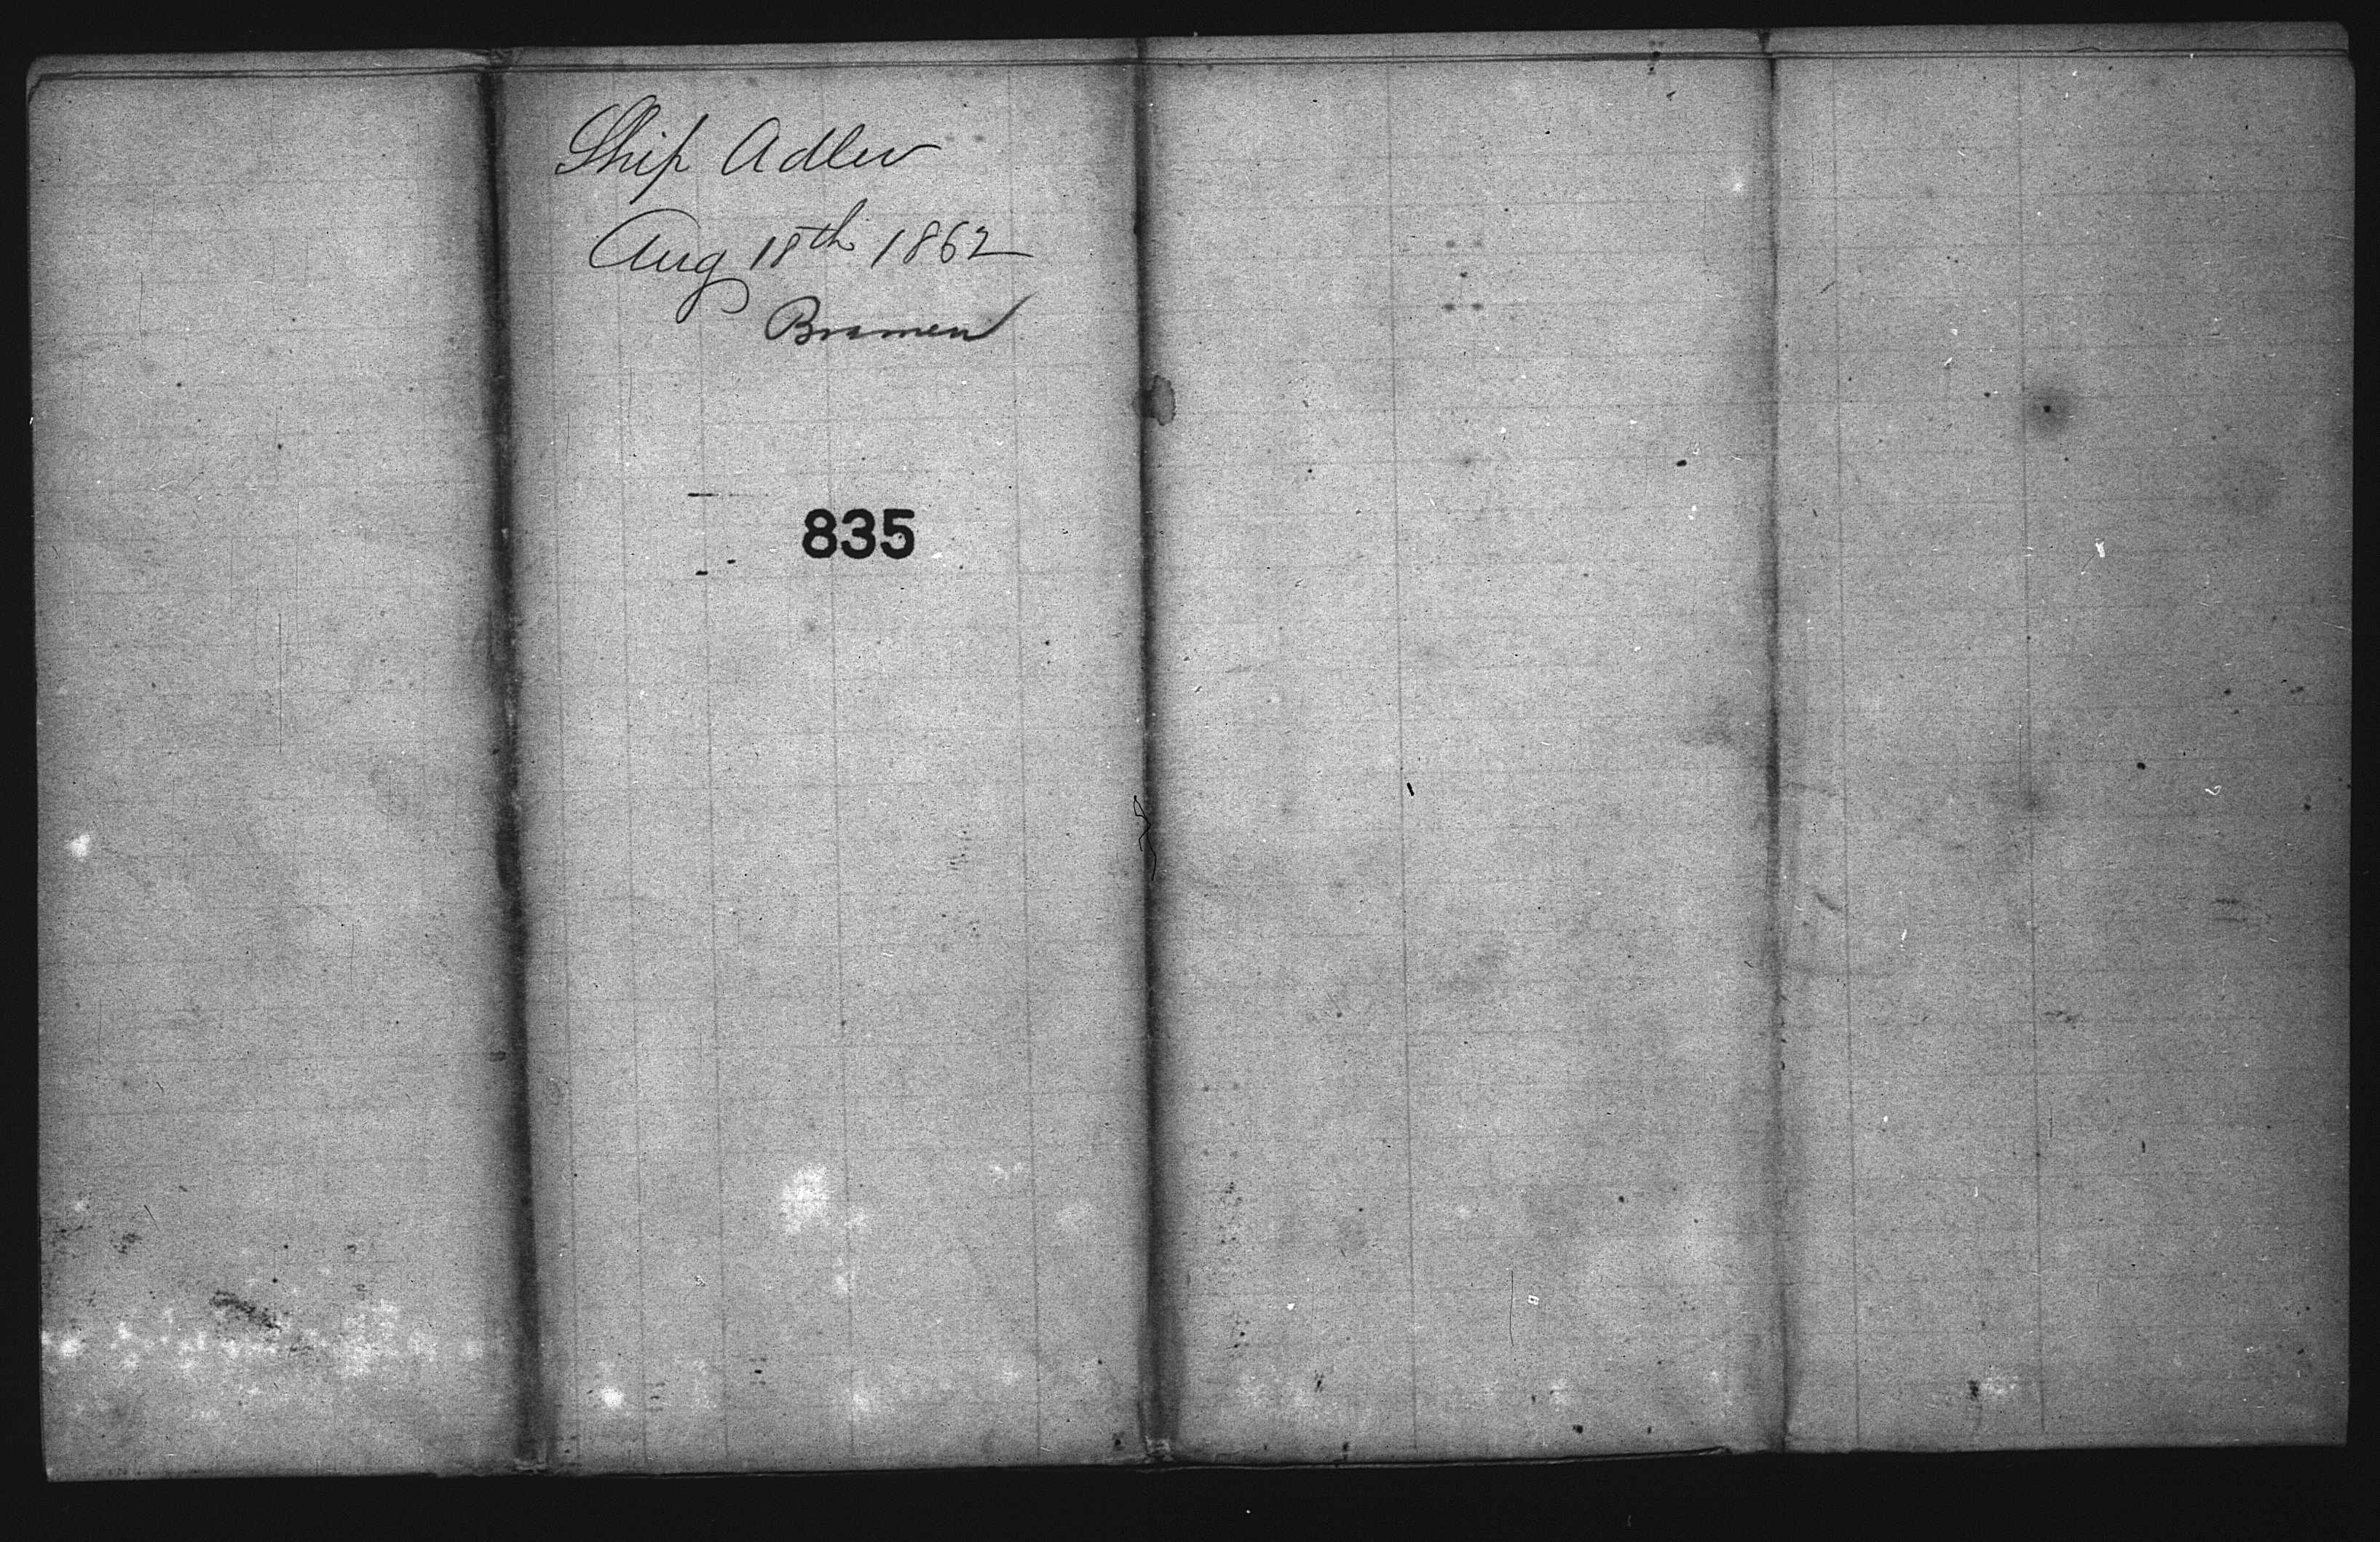 Ship Adler
Aug 18th 1862
Bremen
835